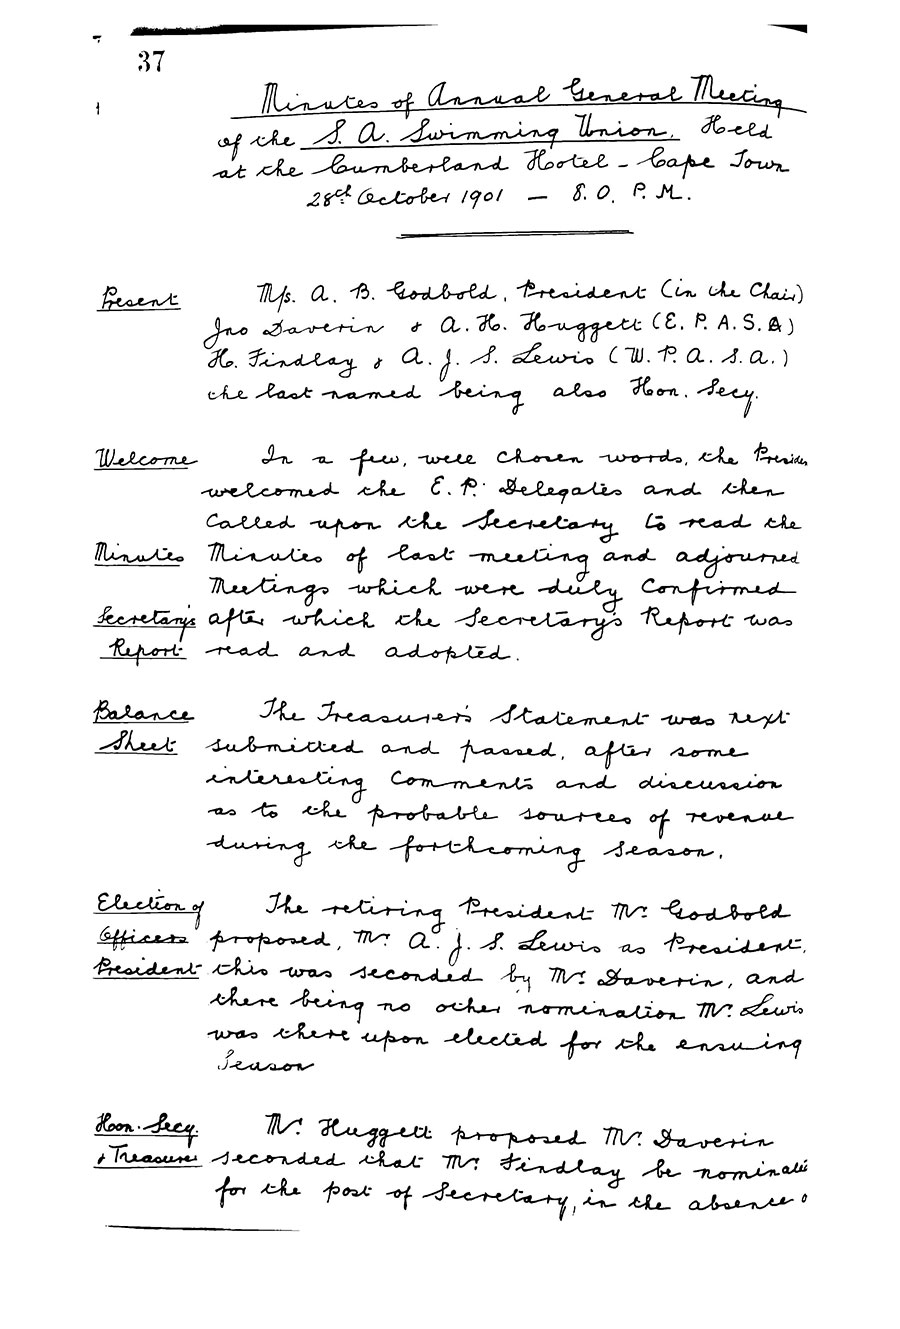 37
Minutes of Annual General Meeting
of the S. A. Swimming Union. Held
at the Cumberland Hotel - Cape Town
28th October 1901 - 8.0. P.M.
Present Mssrs. A. B. Godbold, President (in the Chair)
Jno Daverin & A. H. Huggett (E. P. A. S. A)
H. Findlay & A. J. S. Lewis (W. P. A. S. A.)
the last named being also Hon. Secy.
Welcome In a few, well chosen words, the Presiden
welcomed the E. P. Delegates and then
called upon the Secretary to read the
Minutes Minutes of last meeting and adjourned
Meetings which were duly confirmed
Secretary's after which the Secretary's Report was
Report read and adopted.
Balance The Treasurer's Statement was next
Sheet submitted and passed, after some
interesting comments and discussion
as to the probable sources of revenue
during the forthcoming season.
Election of The retiring President Mr. Godbold
Officers proposed, Mr. A. J. S. Lewis as President,
President this was seconded by Mr. Daverin, and
there being no other nomination Mr. Lewis
was there upon elected for the ensuing
Season
Hon. Secy. Mr. Huggett proposed Mr. Daverin
& Treasurer seconded that Mr. Findlay be nominated
for the post of Secretary, in the absence o